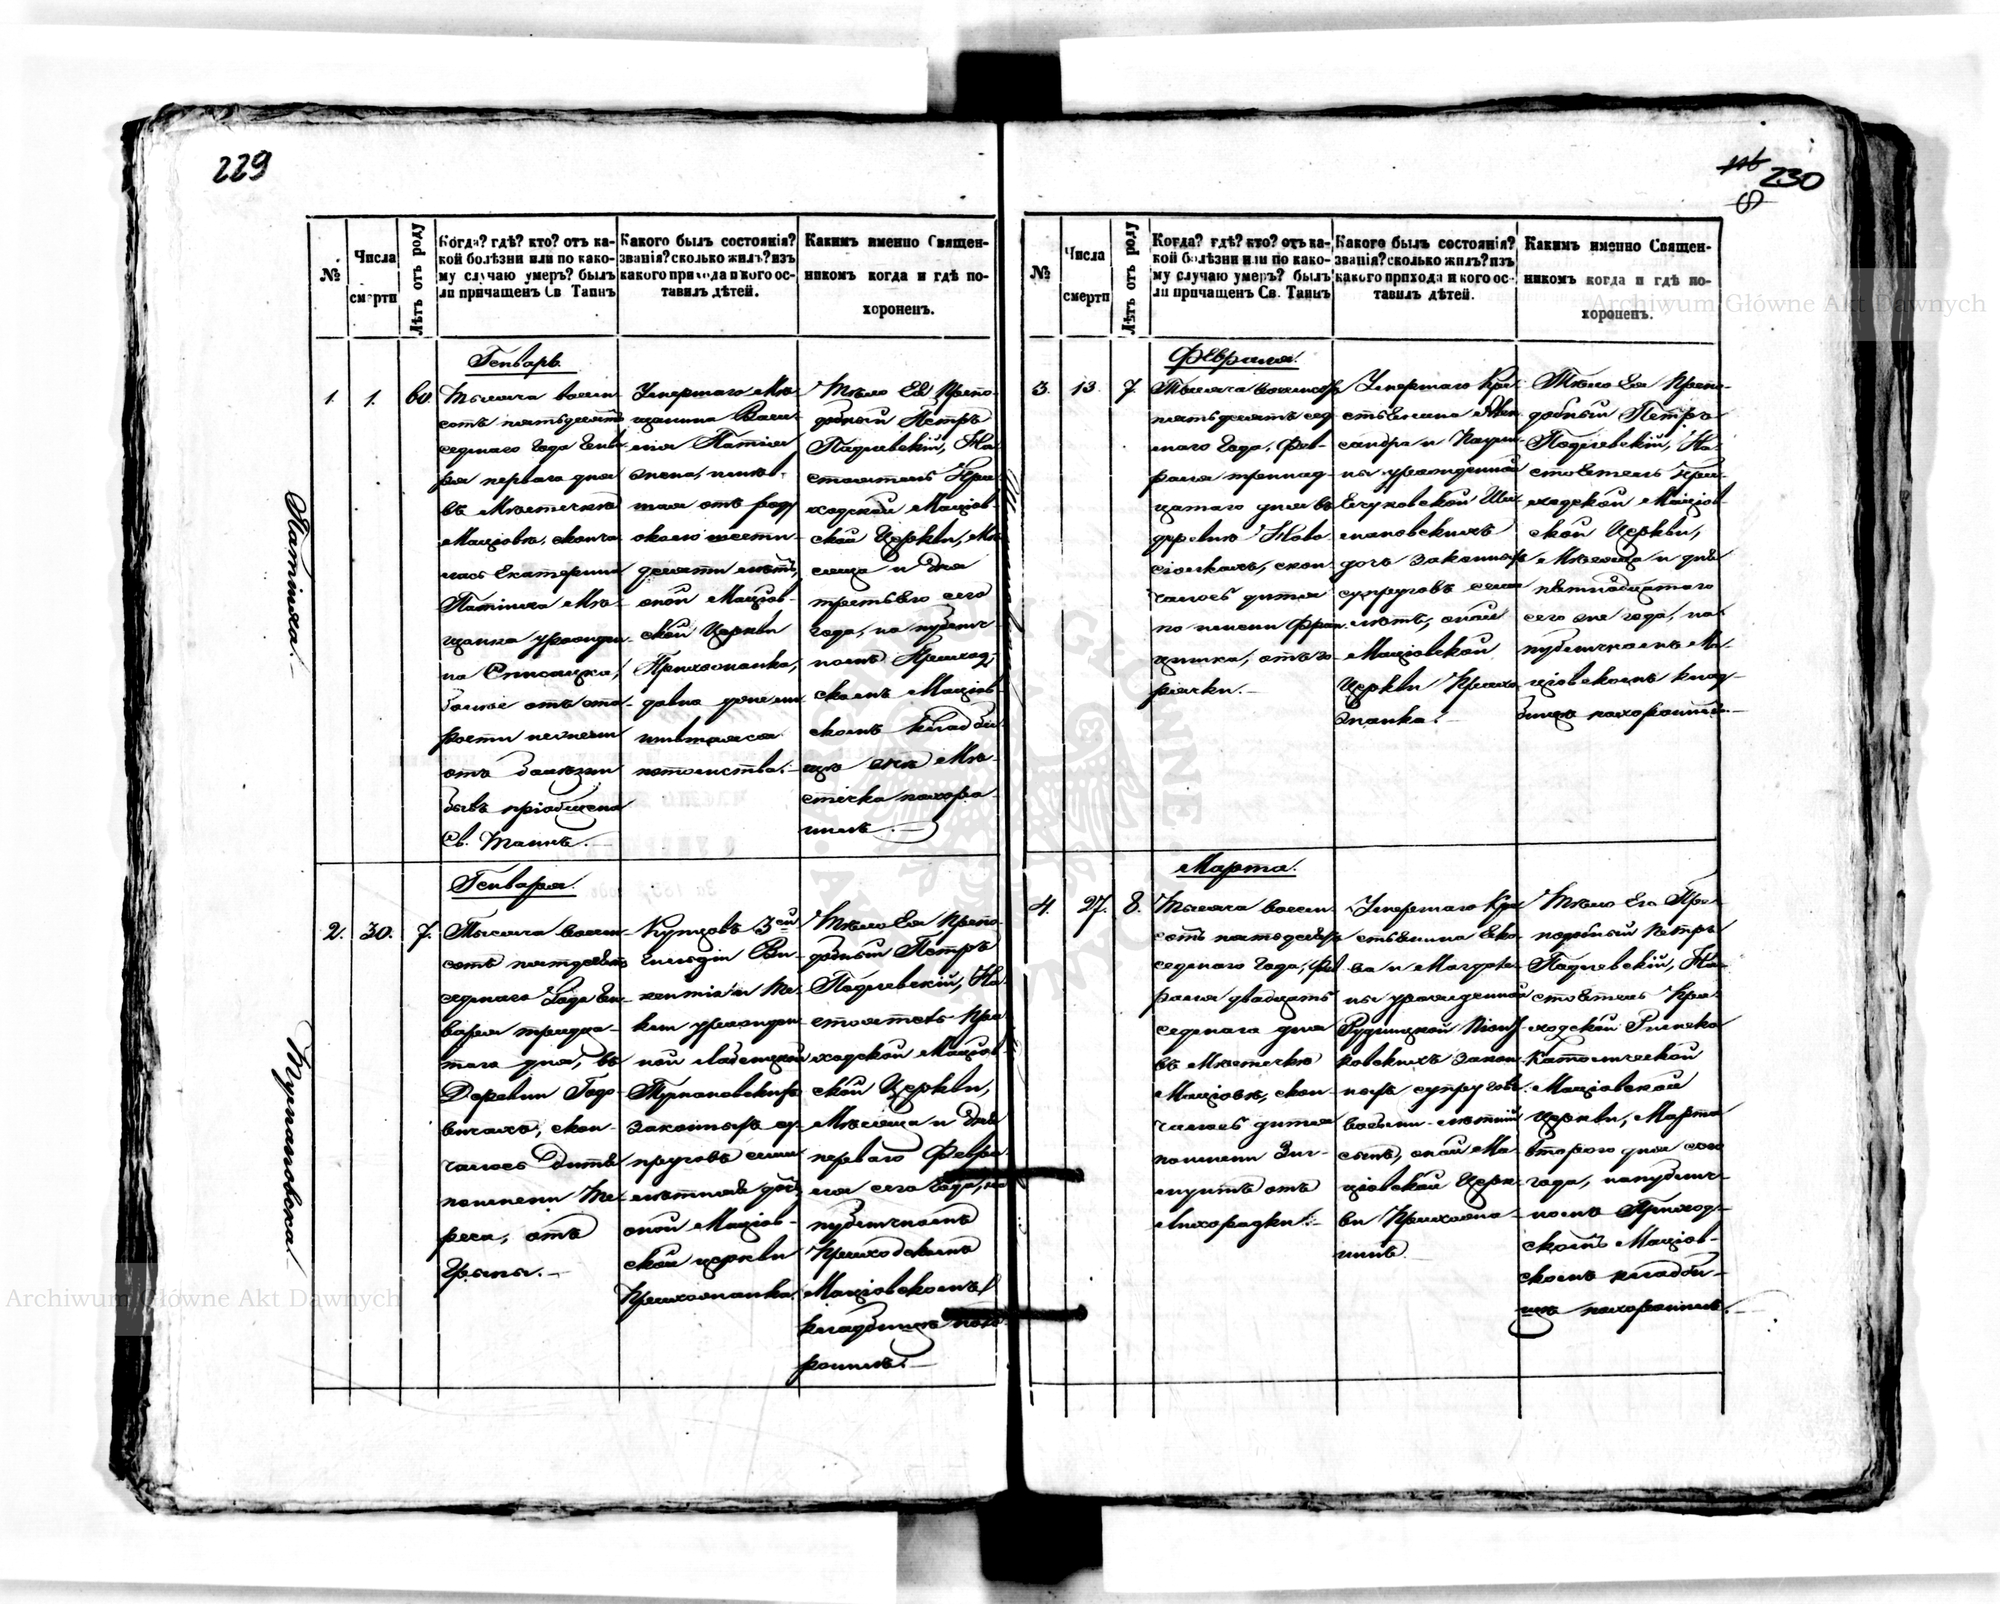 229
№
Числа
смерти
Лѣтъ отъ роду
Когда? гдѣ? кто? отъ ка-
кой болѣзни или по како-
му случаю умеръ? былъ
ли причащенъ Св. Таинъ
Какого былъ состоянія?
званія? сколько жилъ? изъ
какого прихода и кого ос-
тавилъ дѣтей.
Какимъ именно Священ-
никомъ когда и гдѣ по-
хороненъ.
Генваря.
1.
1.
60
Тысяча восем
сотъ пятьдесятъ
седмаго Года Генва
ря перваго дня
въ Мѣстечкѣ
Маціовѣ, сконча
лась Екатерина
Мѣ-
щанка урожден
на
болѣе отъ ста-
рости нежели
отъ болѣзни
бывъ пріобщена
Св. Таинъ.
Умершаго Мѣ
щанина
жена, имѣв-
шая отъ роду
около шести
десяти лѣтъ,
оной Маціов-
ской Церкви
Прихожанка,
потомства.
Тѣло Ея Препо
добный Петръ
Подлевскій, На
стоятель При
ходской Маціов
ской Церкви, Мѣ
сяца и Дня
третьяго сего
года, на публич-
номъ Приход
скомъ Маціов
скомъ кладби
щѣ сего Мѣ-
стечка похоро
нилъ.
Генваря.
2.
30.
7.
Тысяча восем
сотъ пятдесятъ
седмаго Года Ген-
варя тридца-
таго дня, въ
Деревни Годо-
вичахъ, скон-
чалось Дитя
поимени Те-
реса, отъ
Купцовъ 3ей
Гильдіи Ви-
кентія и Те-
клы урожден
ной
Турчановскихъ
законныхъ су-
пруговъ семи
лѣтняя дочь
оной Маціов-
ской церкви
Прихожанка.
Тѣло Ея Препо
добный Петръ
Подлевскій, На
стоятель При
ходской Маціов
ской Церкви,
Мѣсяца и Дня
перваго Февра
ля сего Года, на
публичномъ
Приходскомъ
Маціовскомъ
кладбищѣ похо
ронилъ.
230
№
Числа
смерти
Лѣтъ отъ роду
Когда? гдѣ? кто? отъ ка-
кой болѣзни или по како-
му случаю умеръ? былъ
ли причащенъ Св. Таинъ
Какого былъ состоянія?
званія? сколько жилъ? изъ
какого прихода и кого ос-
тавилъ дѣтей.
Какимъ именно Священ-
никомъ когда и гдѣ по-
хороненъ.
Февраля.
3.
13.
7.
Тысяча восемсотъ
пятьдесятъ сед
маго Года, Фев-
раля тринад-
цатаго дня въ
деревнѣ Ново
скон
чалось дитя
по имени Фран
цишка, отъ го
рячки.
Умершаго Кре
стьянина Алек
сандра и
ны урожденной
дочь законныхъ
супруговъ семи
лѣтъ, оной
Маціовской
Церкви Прихо
жанка.
Тѣло Ея Препо
добный Петръ
Подлевскій, На
стоятель При
ходской Маціов
ской Церкви,
Мѣсяца и дня
пятнадцатаго
сего же года, на
публичномъ Ма-
ціовскомъ клад-
бищѣ похоронилъ.
Марта.
4.
27.
8.
Тысяча восем
сотъ пятьдесятъ
седмаго Года, Фев
раля двадцать
седмаго дня
въ Мѣстечкѣ
Маціовѣ, скон
чалось дитя
поимени Зиг-
мунтъ отъ
Лихорадки.
Умершаго Кре
стьянина Яко-
ва и Магдале-
ны урожденной
закон
ныхъ супруговъ
восьми-лѣтній
сынъ, оной Ма-
ціовской Церк-
ви Прихожа-
нинъ.
Тѣло Его Пре-
подобный Петръ
Подлевскій, На
стоятель При
ходской Римско
Католической
Маціовской
Церкви, Марта
втораго дня сего
года, напублич-
номъ Приход-
скомъ Маціов-
скомъ кладби-
щѣ похоронилъ.
Турчановска.
Archiwum Główne Akt Dawnych
Archiwum Główne Akt Dawnych